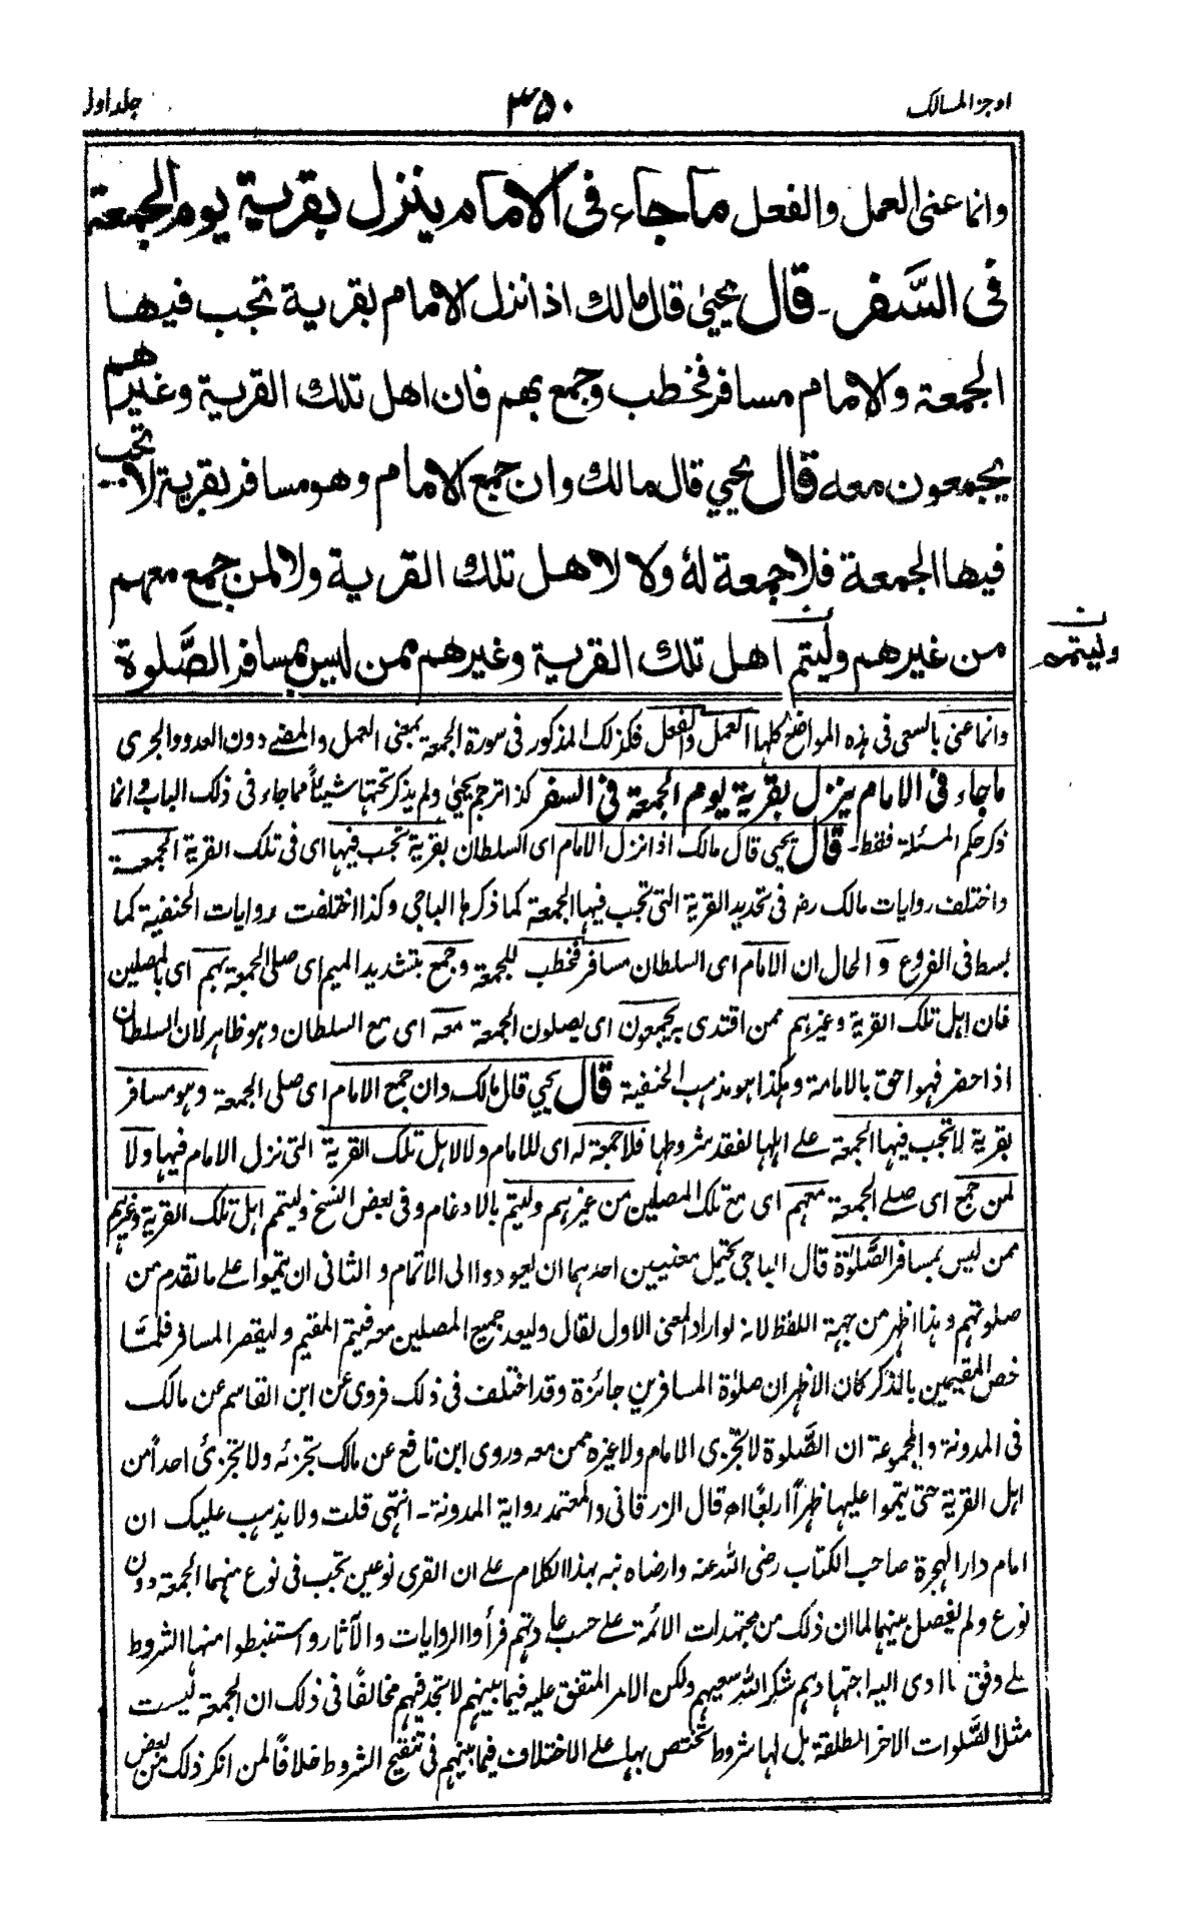 اوجز المسالك
٣٥٠
جلد اول
وانما عنى العمل والفعل ما جاء فى الامام ينزل بقرية يوم الجمعة
فى السَّفر۔ قال يحيىٰ قال مالك اذا نزل الامام بقرية تجب فيها
الجمعة والامام مسافر فخطب وجمع بهم فان اهل تلك القرية وغيرهم
يجمعون معه قال يحيي قال مالك وان جمع الامام وهو مسافر بقرية لا تجب
فيها الجمعة فلا جمعة لهٗ ولا لاهل تلك القرية ولا لمن جمع معهم
من غيرهم وليتم اهل تلك القرية وغيرهم ممن ليس بمسافر الصَّلوة
ن
وليتمم
وانما عنى بالسعى فى هذه المواضع كلها العمل والفعل فكذلك المذكور فى سورة الجمعة بمعنى العمل والمضے دون العدو والجرى
ما جاء فى الامام ينزل بقرية يوم الجمعة فى السفر كذا ترجم يحيىٰ ولم يذكر تحتها شيئاً مما جاء فى ذلك الباب انما
ذكر حكم المسئلة فقط۔ قال يحيى قال مالك اذا نزل الامام اى السلطان بقرية تجب فيها اى فى تلك القرية الجمعة
واختلف روايات مالك رض فى تحديد القرية التى تجب فيها الجمعة كما ذكرها الباجى وكذا اختلفت روايات الحنفية كما
بسط فى الفروع و الحال ان الامام اى السلطان مسافر فخطب للجمعة وجمع بتشديد الميم اى صلى الجمعة بهم اى بالمصلين
فان اهل تلك القرية وغيرهم ممن اقتدى به يجمعون اى يصلون الجمعة معه اى مع السلطان وهو ظاهر لان السلطان
اذا حضر فهو احق بالامامة وهكذا هو مذهب الحنفية قال يحيي قال مالك وان جمع الامام اى صلى الجمعة وهو مسافر
بقرية لا تجب فيها الجمعة علے اهلها لفقد شروطها فلا جمعة له اى للامام ولا لاهل تلك القرية التى نزل الامام فيها ولا
لمن جمع اى صلے الجمعة معهم اى مع تلك المصلين من غيرهم وليتم بالادغام وفى بعض النسخ وليتمم اهل تلك القرية وغيرهم
ممن ليس بمسافر الصَّلوٰة قال الباجى يحتمل معنيين احدهما ان يعودوا الى الاتمام و الثانى ان يتموا علے ما تقدم من
صلوتهم وهذا اظهر من جهة اللفظ لانه لو اراد المعنى الاول لقال وليعد جميع المصلين معه فيتم المقيم و ليقصر المسافر فلمَّا
خص المقيمين بالذكر كان الاظهر ان صلوٰة المسافرين جائزة وقد اختلف فى ذلك فروى عن ابن القاسم عن مالك
فى المدونة والمجموعة ان الصَّلوة لا تجزى الامام ولا غيره ممن معه وروى ابن نافع عن مالك تجزئه ولا تجزئ احداً من
اهل القرية حتى يتموا عليها ظهراً اربعًا اه قال الزرقانى والمعتمد رواية المدونة۔ انتهى قلت ولا يذهب عليك ان
امام دار الهجرة صاحب الكتاب رضى الله عنه وارضاه نبه بهذا الكلام علے ان القرى نوعين تجب فى نوع منهما الجمعة دون
نوع ولم يفصل بينهما لما ان ذلك من مجتهدات الائمة علے حسب عادتهم فرأوا الروايات والآثار واستنبطوا منها الشروط
علے وفق ما ادى اليه اجتهادهم شكر الله سعيهم ولكن الامر المتفق عليه فيما بينهم لا تجد فيهم مخالفًا فى ذلك ان الجمعة ليست
مثل الصَّلوات الاخر المطلقة بل لها شروط تختص بها علے الاختلاف فيما بينهم فى تنقيح الشروط خلافًا لمن انكر ذلك من بعض